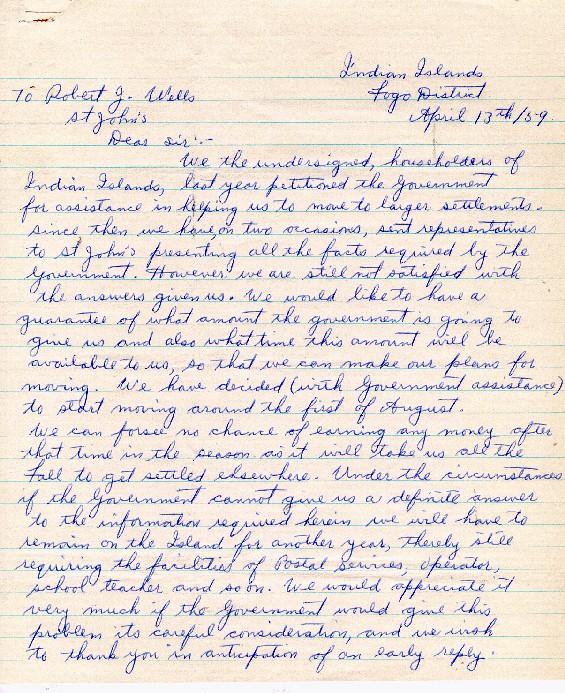 Indian Islands
To Robert J. Wells Fogo District
St John's April 13th/59.
Dear Sir:-
We the undersigned, householders of
Indian Islands, last year petitioned the Government
for assistance in helping us to move to larger settlements.
Since then we have, on two occasions, sent representatives
to St John's presenting all the facts required by the
Government. However we are still not satisfied with
the answers given us. We would like to have a
guarantee of what amount the government is going to
give us and also what time this amount will be
available to us, so that we can make our plans for
moving. We have decided (with Government assistance)
to start moving around the first of August.
We can forsee no chance of earning any money after
that time in the season as it will take us all the
Fall to get settled elsewhere. Under the circumstances
if the Government cannot give us a definite answer
to the information required herein we will have to
remain on the Island for another year, thereby still
requiring the facilities of Postal Services, operator,
school teacher and so on. We would appreciate it
very much if the Government would give this
problem its careful consideration, and we wish
to thank you in anticipation of an early reply.